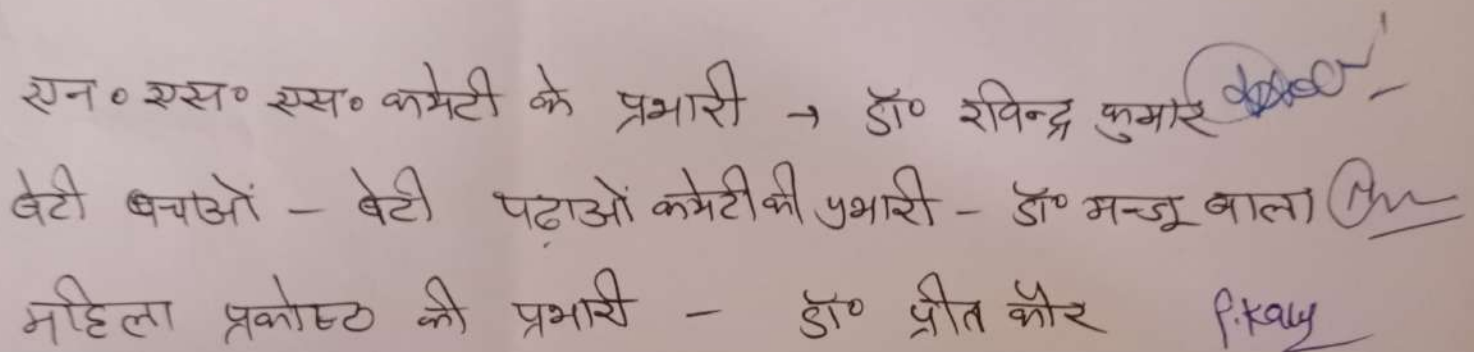 एन० एस० एस० कमेटी के प्रभारी → डॉ० रविन्द्र कुमार
बेटी बचाओं - बेटी पढ़ाओं कमेटी की प्रभारी - डॉ० मन्जू बाला
महिला प्रकोष्ठ की प्रभारी - डॉ० प्रीत कौर P.Kaur